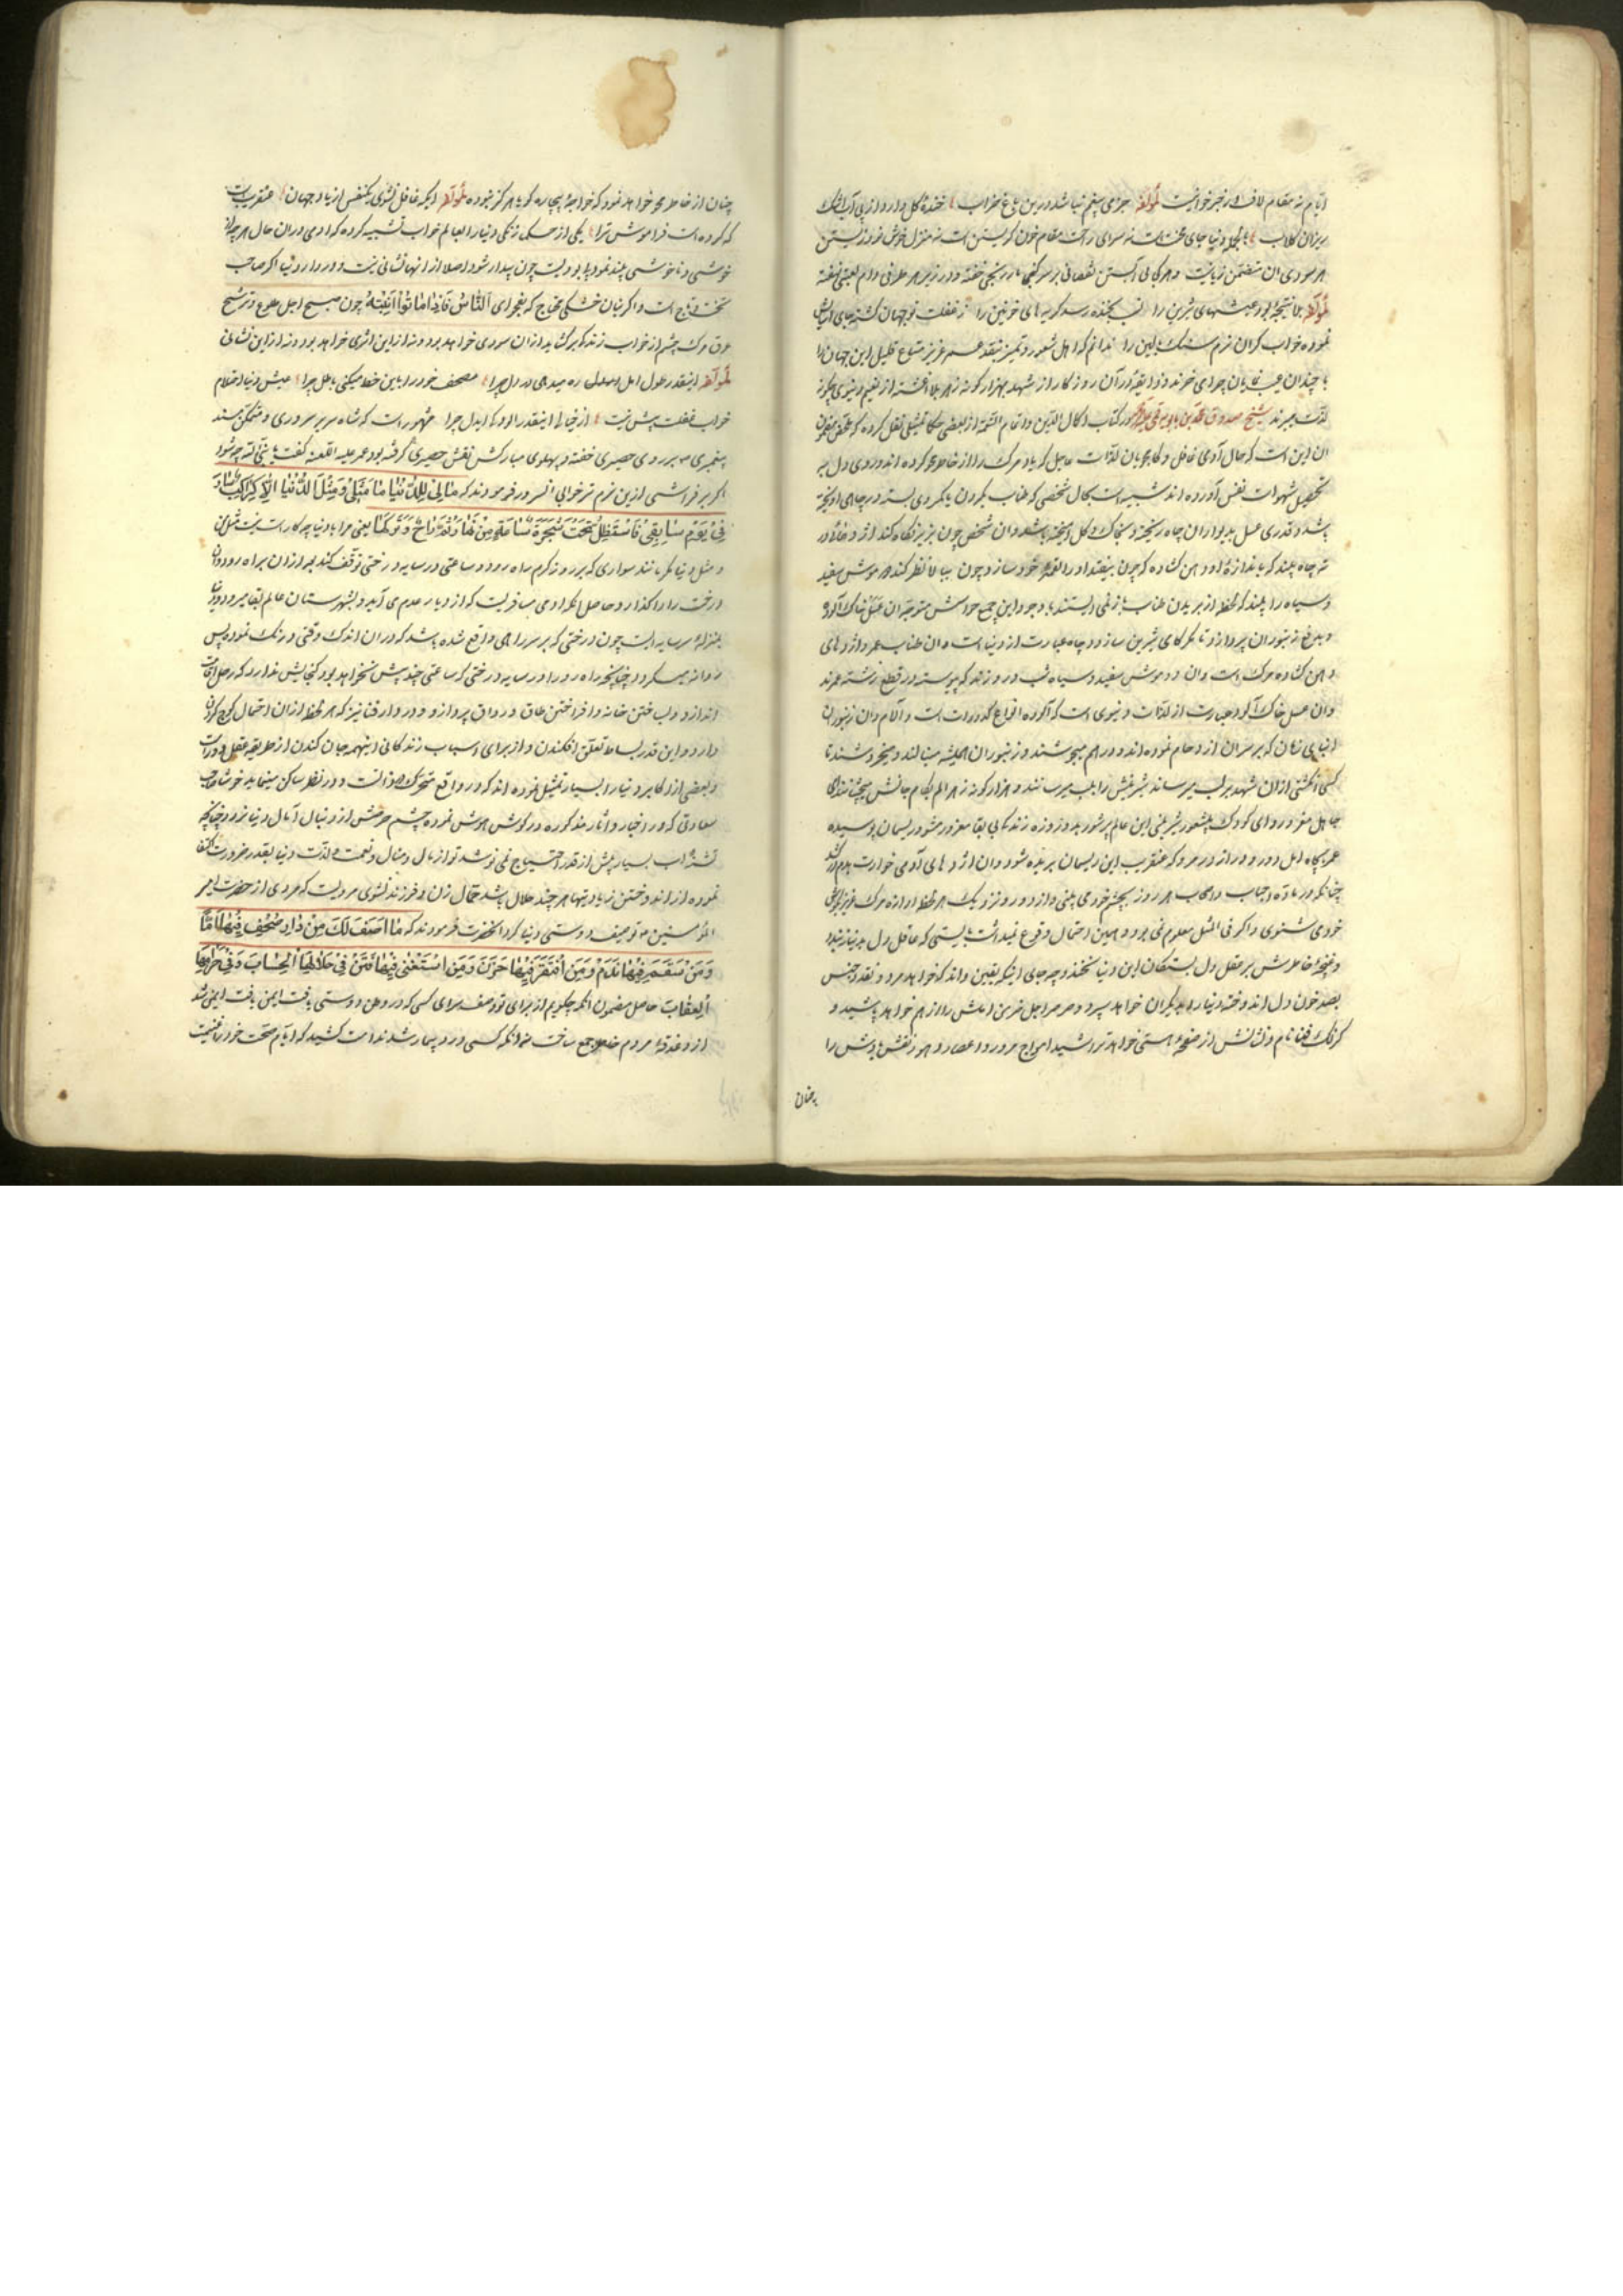 ایام نه مقام لاف از خبر خوانیست لمؤلفه جزدی بیغم نباشد درین باغ خراب خنده گل دارد از پی آب اشک
ریزان گلاب بالجمله دنیا جای محنت است نه سرای راحت مقام خون گریستن است نه منزل خوش خوردن زیستن
هر سودی ان متضمن زیانیست و هر کمالی آبستن نقصانی بر سر گنجی مار رنجی خفته و در زیر هر طرفی دام
لمؤلفه عیشهای شیرین را لب بخنده رسد گریه های خونین را ز غفلت تو جهان گشته جای آسایش
نموده خواب گران نرم سنگ بالین را ندانم که اهل شعور و تمیز بنقد عمر عزیز متاع قلیل این جهان را
با چندان عیب نمایان چرا می خرند و ذایقه آن روزگار از شهد بهزار گونه زهر بلا اغشته از نعیم دنیوی چگونه
لذت میبرند شیخ صدوق محمد بن بابویه قمی در کتاب اکمال الدین و اتمام النعمه از بعضی حکما تمثیلی نقل کرده که مضمون
ان این است که حال آدمی غافل و کامجویان لذات عاجل که یاد مرگ را از خاطر محو کرده اند و روی دل به
تحصیل شهوات نفس آورده اند شبیه است بحال شخصی که طناب بگردن یا بکمر وی بسته در چاهی اویخته
باشد و قدری عسل بدیوار ان چاه ریخته و بخاک و گل امیخته باشد و ان شخص چون بزیر نگاه کند اژدهائی در
ته چاه بیند که باندازه او دهن گشاده که چون بیفتد او را لقمه خود سازد و چون ببالا نظر کند دو موش سفید
و سیاه را بیند که لحظه از بریدن طناب باز نمی ایستند با وجود این جمیع حواسش متوجه ان عسل خاک آلوده
و بدفع زنبوران پردازد تا مگر کامی شیرین سازد و چاه عبارت از دنیاست و ان طناب عمر و اژدهای
دهن گشاده مرگ است و ان دو موش سفید و سیاه شب و روزند که پیوسته در قطع رشته عمرند
و ان عسل خاک آلود عبارت از لذات دنیوی است که آلوده انواع کدورات است و آلام و ان زنبوران
ابنای زمان که بر سر ان ازدحام نموده اند و در هم میجوشند و زنبوران همیشه مینالند و میخروشند تا
کسی انگشتی از ان شهد بر لب میرساند نیشش را بلب میرسانند و هزار گونه زهر الم بکام جانش میچشانند ای
جاهل مغرور و ای کودک بیشعور بشیرینی این عالم پرشور بدو روزه زندگانی بی بقا مغرور مشو و ریسمان پوسیده
عمر بگاه امل دور و دراز در مرو که عنقریب این ریسمان بریده شود و ان اژدهای آدمی خوارت بدم درکشد
چنانکه در ماده احباب و اصحاب هر روز بچشم خود می بینی و از دور و نزدیک هر لحظه آوازه مرگ عزیزی بگوش
خود می شنوی و اگر فی المثل معلوم نمی بود و همین احتمال وقوع میداشت بایستی که عاقل دل بدنیا نبندد
و غنچه خاطرش بر عقل دل بستگان این دنیا نخندد چه جای اینکه یقین داند که خواهد مرد و نقد و جنس
بصد خون دل اندوخته دنیا را بدیگران خواهد سپرد و صرصر اجل خرمن اماش را از هم خواهد پاشید و
کزلک فنا نام و نشانش از صفحه هستی خواهد تراشید امواج مرور و اعصار و دهور نقش بودش را
چنان
چنان از خاطر محو خواهد نمود که خواجه بیچاره گویا هرگز نبوده لمؤلفه ایکه غافل نشوی یکنفس از یاد جهان عنقریب است
که کرده است فراموش ترا یکی از حکما زندگی دنیا را بعالم خواب تشبیه کرده که ادمی در ان حال هر چه از
خوشی و ناخوشی بیند نمود بی بودیست چون بیدار شود اصلا از انها نشانی نیست و در دار دنیا اگر صاحب
تخت و تاج است و اگر بنان خشکی محتاج که بفحوای اَلنَّاسُ نِیامٌ فَاِذَا مَاتُوْا اِنْتَبَهُوا چون صبح اجل طلوع و ترشح
عرق مرگ چشم از خواب زندگی برگشاید از ان سودی خواهد بود و نه از این اثری خواهد بود و نه از این نشانی
لمؤلفه اینقدر طول امل ره میدهی در دل چرا مصحف خود را باین خط میکنی باطل چرا عیش دنیا احتلام
خواب غفلت بیش نیست از خیالی اینقدر الودگی ایدل چرا مشهور است که شاه سریر سروری و متمکن مسند
پیغمبری ص بر روی حصیری خفته و پهلوی مبارکش نقش حصیر گرفته بود عمر علیه اللعنه گفت یا نبی الله چه شود
اگر بر فراشی ازین نرم تر خوابی انسرور فرمودند که مَا لِیْ لِلدُّنْیَا مَا مَثَلِیْ وَ مَثَلُ الدُّنْیَا اِلَّا کَرَاکِبٍ سَارَ
فِیْ یَوْمٍ صَایِفٍ فَاسْتَظَلَّ تَحْتَ شَجَرَةٍ سَاعَةً مِنْ نَهَارٍ ثُمَّ رَاحَ وَ تَرَکَهَا یعنی مرا با دنیا چه کار است نیست مثل من
و مثل دنیا مگر مانند سواری که بر روز گرم براه رود و ساعتی در سایه درختی توقف کند بعد از ان براه رود و ان
درخت را واگذارد حاصل انکه ادمی مسافریست که از دیار عدم می آید و بشهرستان عالم بقا میرود و دنیا
بمنزله سر سایه ایست چون درختی که بر سر راهی واقع شده باشد که در ان اندک وقتی درنگ نموده پس
روانه میگردد چنانچه راه رو را در سایه درختی که ساعتی چند بیش نخواهد بود گنجایش ندارد که رحل اقامت
اندازد و بساختن خانه و افراختن طاق و رواق پردازد و در دار فنا نیز که هر لحظه در ان احتمال کوچ کردن
دارد و این قدر بساط تعلق افکندن و از برای اسباب زندگانی اینهمه جان کندن از طریقه عقل دور است
و بعضی از اکابر دنیا را بسایه تمثیل نموده اند که در واقع متحرک و روانست و در نظر ساکن مینماید خوشا صاحب
سعادتی که در اخبار و اثار مذکوره در گوش هوش نموده چشم حرصش از دنبال آمال دنیا نرود چنانچه
تشنه اب بسیار بیش از قدر احتیاج نمی نوشد تو از مال و منال و نعمت و لذت دنیا بقدر ضرورت اکتفا
نموده از اندوختن زیادتیها هر چند حلال باشد حمال زن و فرزند نشوی مرویست که مردی از حضرت امیر
المؤمنین ع توصیف دوستی دنیا کرد انحضرت فرمودند که مَا اَصِفُ لَكَ مِنْ دَارٍ مَنْ صَحَّ فِیْهَا اَمِنَ
وَ مَنْ سَقِمَ فِیْهَا نَدِمَ وَ مَنِ افْتَقَرَ فِیْهَا حَزِنَ وَ مَنِ اسْتَغْنٰی فِیْهَا فُتِنَ فِیْ حَلَالِهَا اَلْحِسَابُ وَ فِیْ حَرَامِهَا
اَلْعِقَابُ حاصل مضمون انکه چگویم از برای تو وصف سرای کسی که در وطن دوستی یافت ایمن شد
از دغدغه مردم خاطر جمع ساخت و انکه کسی در او بیمار شد ندامت کشید که ایام صحت خود را غنیمت